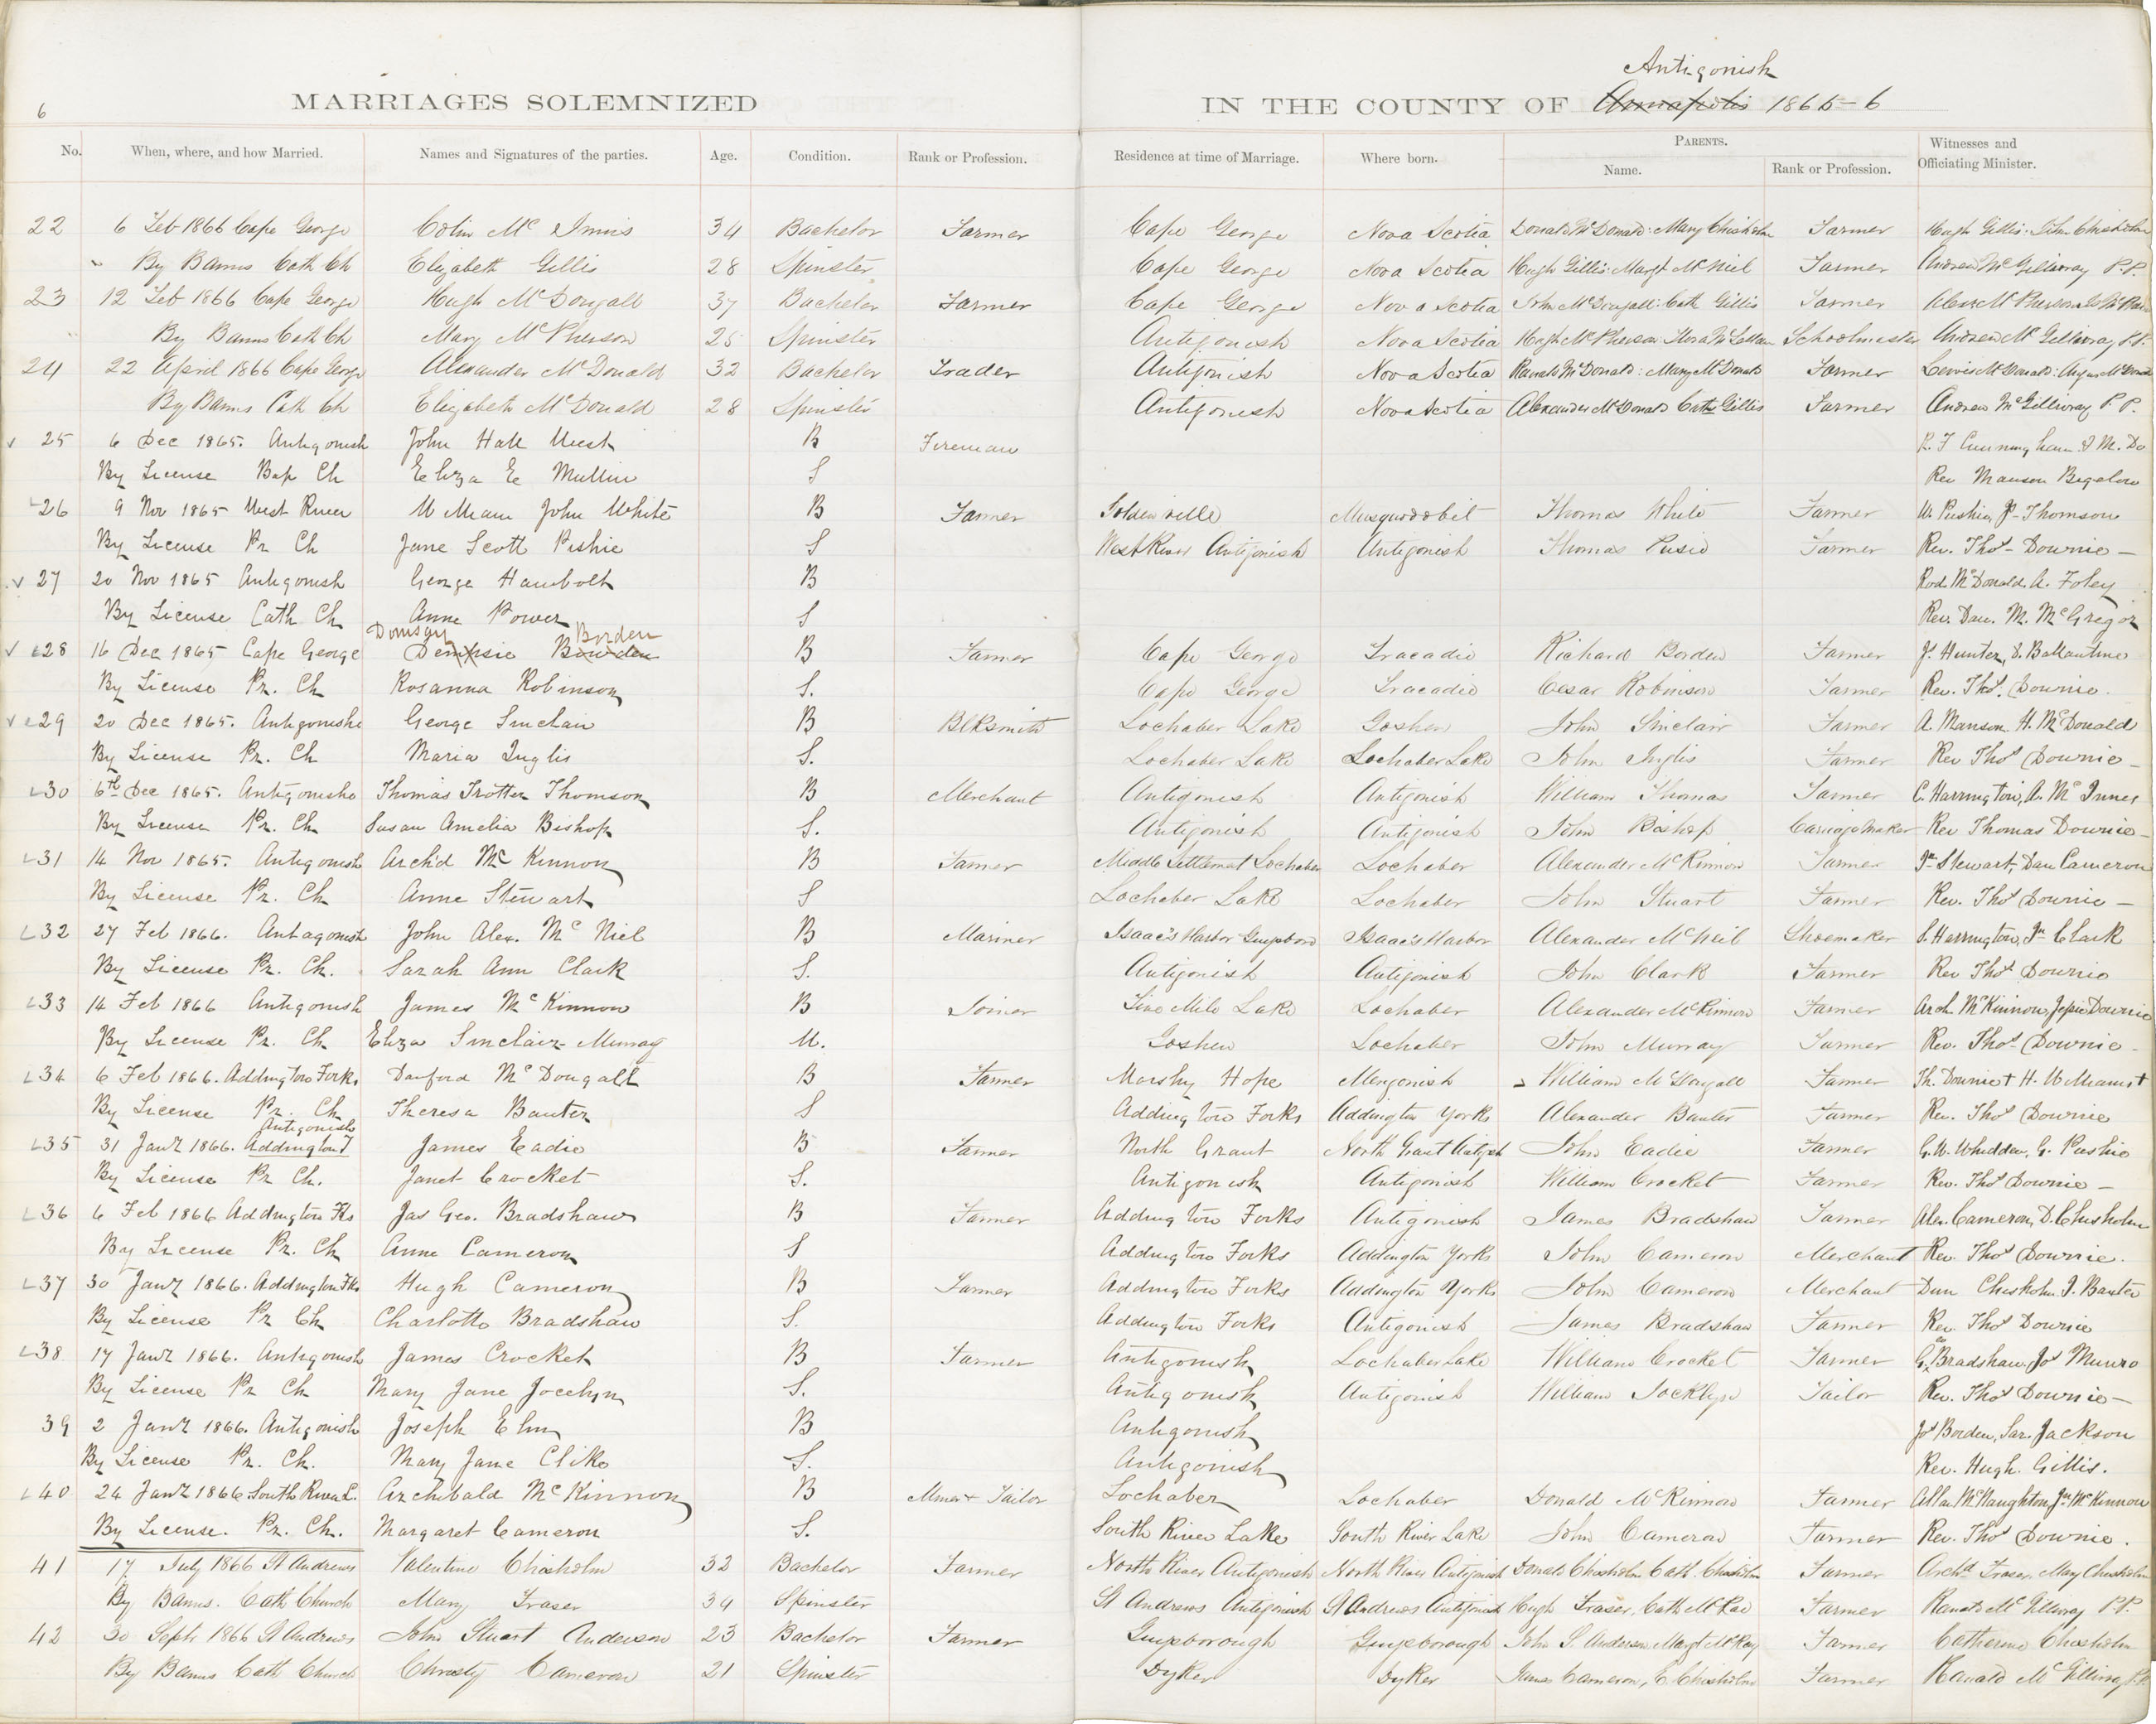 Antigonish
6 MARRIAGES SOLEMNIZED IN THE COUNTY OF Annapolis 1865-6
No. When, where, and how Married. Names and Signatures of the parties. Age. Condition. Rank or Profession. Residence at time of Marriage. Where born. PARENTS. Name. Rank or Profession. Witnesses and Officiating Minister.
22 6 Feb 1866 Cape George Colin McInnis 34 Bachelor Farmer Cape George Nova Scotia Donald McDonald: Mary Chisholm Farmer Hugh Gillis: John Chisholm
By Banns Cath Ch Elizabeth Gillis 28 Spinster Cape George Nova Scotia Hugh Gillis: Margt McNiel Farmer Andrew McGillivray P.P.
23 12 Feb 1866 Cape George Hugh McDougall 37 Bachelor Farmer Cape George Nova Scotia John McDougall: Cath Gillis Farmer Alex McPherson
By Banns Cath Ch Mary McPherson 25 Spinster Antigonish Nova Scotia Hugh McPherson Flora McLellan Schoolmaster Andrew McGillivray P.P.
24 22 April 1866 Cape George Alexander McDonald 32 Bachelor Trader Antigonish Nova Scotia Ranald McDonald: Mary McDonald Farmer Lewis McDonald: Angus McDonald
By Banns Cath Ch Elizabeth McDonald 28 Spinster Antigonish Nova Scotia Alexander McDonald Cath Gillis Farmer Andrew McGillivray P.P.
25 6 Dec 1865. Antigonish John Hall West B Fireman R. T Cunningham & M. Do
By License Bap Ch Eliza E Mullin S Rev Manson Bigelow
26 9 Nov 1865 West River William John White B Farmer Goldenville Musquodobit Thomas White Farmer W. Pushie, Jn Thomson
By License Pr Ch Jane Scott Pushie S West River Antigonish Antigonish Thomas Pusie Farmer Rev. Thos Downie —
27 20 Nov 1865 Antigonish George Hambolt B Rod McDonald, A. Foley
By License Cath Ch Anne Power S Rev. Dan. M. McGregor
Domsay Borden
28 16 Dec 1865 Cape George Dempsie Bowden B Farmer Cape George Tracadie Richard Borden Farmer J. Hunter, D. Ballantine
By License Pr. Ch Rosanna Robinson S. Cape George Tracadie Cesar Robinson Farmer Rev. Thos. Downie.
29 20 Dec 1865. Antigonishe George Sinclair B Blksmith Lochaber Lake Goshen John Sinclair Farmer A. Manson. H. McDonald
By License Pr. Ch Maria Inglis S. Lochaber Lake Lochaber Lake John Inglis Farmer Rev Thos Downie —
30 6th Dec 1865. Antigonishe Thomas Trotter Thomson B Merchant Antigonish Antigonish William Thomas Farmer C. Harrington, A. McInnes
By License Pr. Ch Susan Amelia Bishop S. Antigonish Antigonish John Bishop Carriage Maker Rev Thomas Downie —
31 14 Nov 1865. Antigonish Archd McKinnon B Farmer Middle Settlement Lochaber Lochaber Alexander McKinnon Farmer Jn Stewart, Dan Cameron
By License Pr. Ch Anne Stewart S Lochaber Lake Lochaber John Stuart Farmer Rev. Thos Downie —
32 27 Feb 1866. Antagonish John Alex. McNiel B Mariner Isaac's Harbor Guysboro Isaac's Harbor Alexander McNeil Shoemaker S. Harrington, Jn Clark
By License Pr. Ch. Sarah Ann Clark S. Antigonish Antigonish John Clark Farmer Rev Thos Downie
33 14 Feb 1866 Antigonish James McKinnon B Joiner Five Mile Lake Lochaber Alexander McKinnon Farmer Arch. McKinnon, Jessie Downie
By License Pr. Ch Eliza Sinclair Murray M. Goshen Lochaber John Murray Farmer Rev. Thos Downie —
34 6 Feb 1866. Addington Forks Danford McDougall B Farmer Marshy Hope Merigonish William McDougall Farmer Th. Downie + H. Williams +
By License Pr. Ch Theresa Bauter S Addington Forks Addington Yorks Alexander Bauter Farmer Rev. Thos Downie
Antigonish
35 31 Jany 1866. Addington F James Eadie B Farmer North Grant North Grant Antigonish John Eadie Farmer G. W. Whidden, G. Pushie
By License Pr Ch. Janet Crocket S. Antigonish Antigonish William Crocket Farmer Rev. Thos Downie —
36 6 Feb 1866 Addington Fks Jas Geo. Bradshaw B Farmer Addington Forks Antigonish James Bradshaw Farmer Alex. Cameron, D. Chisholm
By License Pr. Ch Anne Cameron S Addington Forks Addington Yorks John Cameron Merchant Rev. Thos Downie.
37 30 Jany 1866. Addington Fks Hugh Cameron B Farmer Addington Forks Addington Yorks John Cameron Merchant Dun Chisholm J. Bauter
By License Pr Ch Charlotte Bradshaw S. Addington Forks Antigonish James Bradshaw Farmer Rev Thos Downie
38 17 Jany 1866. Antigonish James Crocket B Farmer Antigonish Lochaber Lake William Crocket Farmer G. Bradshaw, Jos Munro
By License Pr Ch Mary Jane Jocelyn S. Antigonish Antigonish William Jocklyn Tailor Rev. Thos Downie —
39 2 Jany 1866. Antigonish Joseph Elm B Antigonish Js Borden, Sar. Jackson
By License Pr. Ch. Mary Jane Cliko S. Antigonish Rev. Hugh Gillis.
40 24 Jany 1866 South River L. Archibald McKinnon B Miner & Tailor Lochaber Lochaber Donald McKinnon Farmer Allan McNaughton, Jn McKinnon
By License. Pr. Ch. Margaret Cameron S. South River Lake South River Lake John Cameron Farmer Rev. Thos Downie.
41 17 July 1866 St Andrews Valentine Chisholm 32 Bachelor Farmer North River Antigonish North River Antigonish Donald Chisholm Cath. Chisholm Farmer Archd Fraser, Mary Chisholm
By Banns. Cath Church Mary Fraser 34 Spinster St Andrews Antigonish St Andrews Antigonish Hugh Fraser, Cath McRae Farmer Ranald McGillivray P.P.
42 30 Septr 1866 St Andrews John Stuart Anderson 23 Bachelor Farmer Guysborough Guysborough John S. Anderson Margt McKay Farmer Catherine Chisholm
By Banns Cath Church Christy Cameron 21 Spinster Dyker Dyker James Cameron, C. Chisholm Farmer Ranald McGillivray P.P.